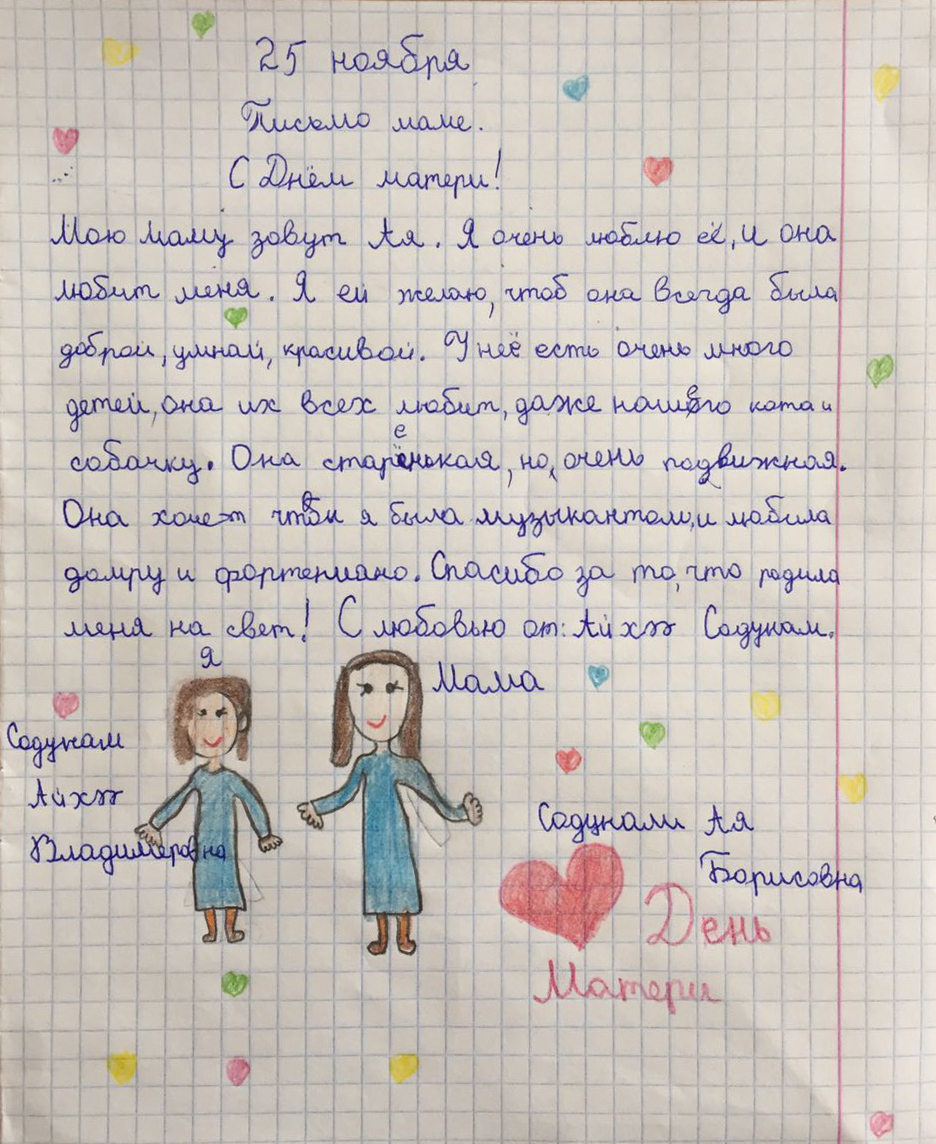 25 ноября
Письмо маме.
С Днём матери!
Мою маму зовут Ая. Я очень люблю её, и она
любит меня. Я ей желаю, чтоб она всегда была
доброй, умной, красивой. У неё есть очень много
детей, она их всех любит, даже нашего кота и
собачку. Она старенькая, но, очень подвижная.
Она хочет чтобы я была музыкантом, и любила
домру и фортепиано. Спасибо за то, что родила
меня на свет! С любовью от: Айхээ Содунам.
Я
Мама
Содунам
Айхээ
Владимировна
Содунам Ая
Борисовна
День
Матери